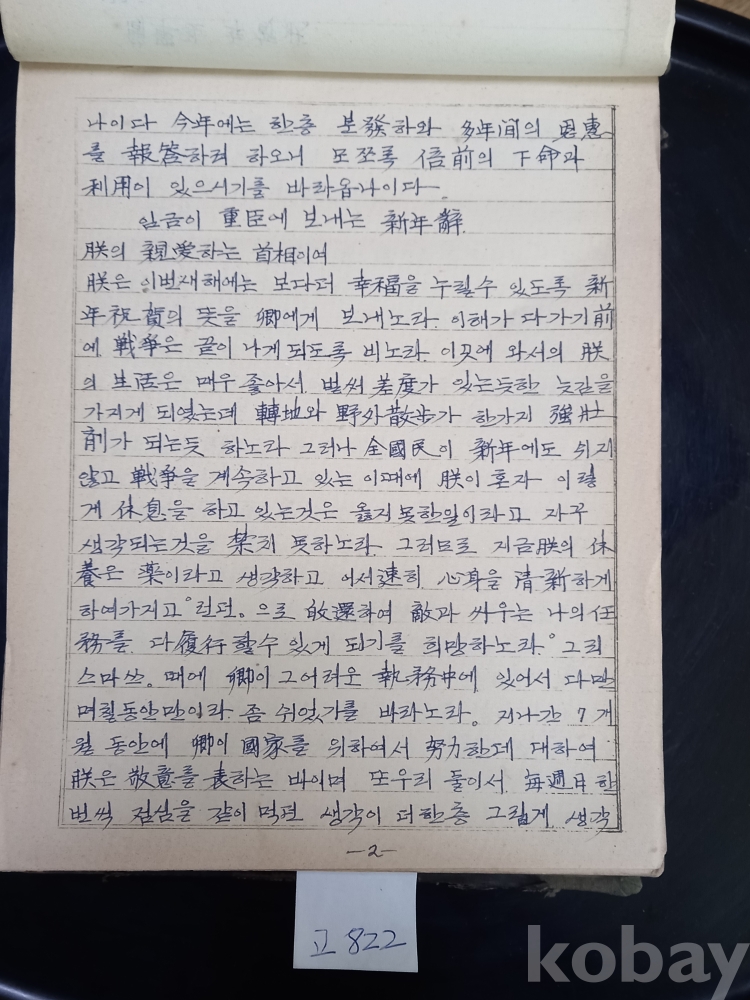 나이다 今年에는 한층 분發하와 多年间의 恩惠
를 報答하려 하오니 모쪼록 倍前의 下命과
利用이 있으시기를 바라옵나이다
임금이 重臣에 보내는 新年辭.
朕의 親愛하는 首相이여
朕은 이번새해에는 보다더 幸福을 누릴수 있도록 新
年祝賀의 뜻을 卿에게 보내노라. 이해가 다가기前
에 戰爭은 끝이 나게 되도록 비노라. 이곳에 와서의 朕
의 生活은 매우 좋아서 벌써 差度가 있는듯한 늣김을
가지게 되였는데 轉地와 野外散步가 한가지 強壯
前가 되는듯 하노라 그러나 全國民이 新年에도 쉬지
않고 戰爭을 계속하고 있는 이때에 朕이 혼자 이렇
게 休息을 하고 있는것은 옳지 못한일이라고 자꾸
생각되는것을 禁치 못하노라. 그러므로 지금朕의 休
養은 藥이라고 생각하고 어서速히 心身을 淸新하게
하여가지고 "런던。으로 放還하여 敵과 싸우는 나의任
務를 다履行할수 있게 되기를 희망하노라。그리
스마쓰。때에 卿이 그어려운 執務中에 있어서 다만
며칠동안만이라 좀 쉬었기를 바라노라。지나간 7개
월 동안에 卿이 國家를 위하여서 努力한데 대하여
朕은 敬意를 表하는 바이며 또우리 둘이서 每週日 한
번씩 점심을 같이 먹던 생각이 더한층 그립게 생각
-2-
고 822
kobay